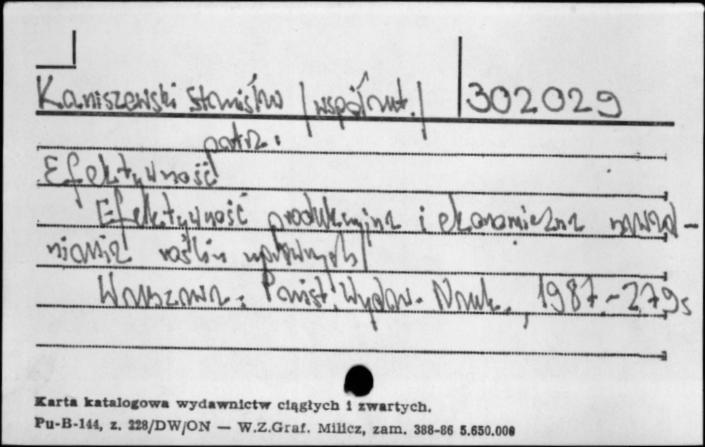 Kaniszewski Stanisław /współaut./ 302029
patrz.
Efektywność
Efektywność produkcyjna i ekonomiczna nawad-
niania roślin uprawnych/
Warszawa: Państ. Wydaw. Nauk., 1987.-279s
Karta katalogowa wydawnictw ciągłych i zwartych.
Pu-B-144, z. 228/DW/ON — W.Z.Graf. Milicz, zam. 388-86 5.650.000